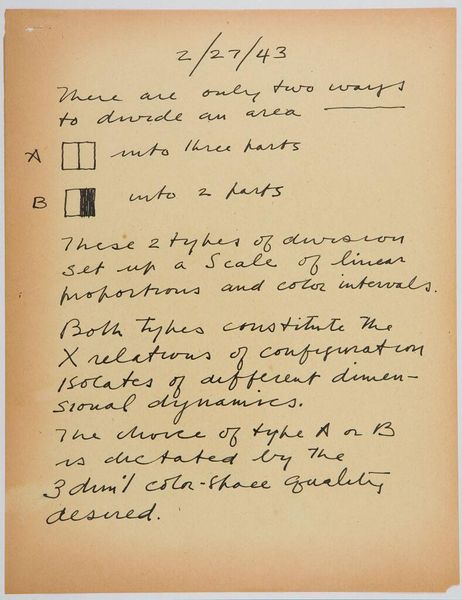 2/27/43
There are only two ways
to divide an area
A into three parts
B into 2 parts
These 2 types of division
set up a Scale of linear
proportions and color intervals.
Both types constitute the
X relations of configuration
isolates of different dimen-
sional dynamics.
The choice of type A or B
is dictated by the
3 dim'l color-space quality
desired.